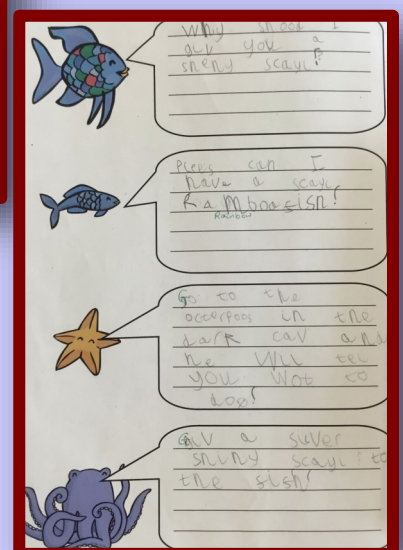 Why shood I
giv you a
sheny scayl?
Plees can I
have a scayl
Ramboofish!
Rainbow
Go to the
octerpoos in the
dark cav and
he wil tel
you wot to
doo!
Giv a suver
shiny scayl to
the fish!